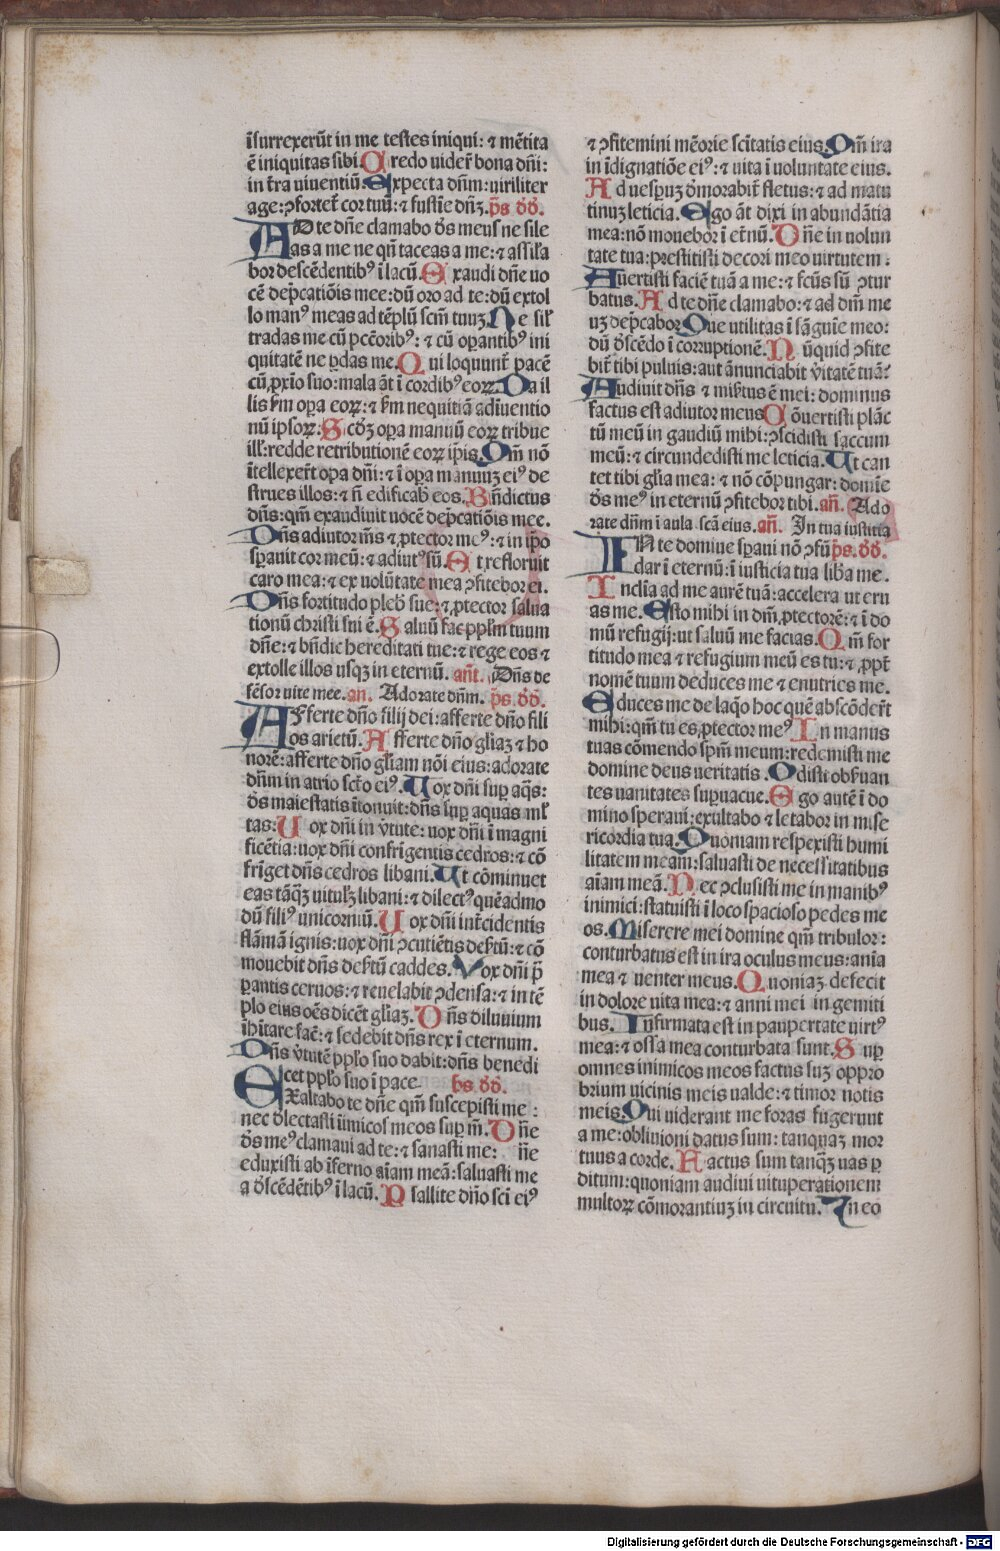 īsurrexerūt in me testes iniqui: ⁊ mētita
ē iniquitas sibi. Credo uider̄ bona dñi:
in t̄ra uiuentiū. Expecta dñm: uiriliter
age: ꝯfortet̄ cor tuū: ⁊ sustīe dñꝫ. p̄s. dd̄.
AD te dñe clamabo ds̄ meus ne sile
as a me ne qñ taceas a me: ⁊ assil̄a
bor descēdentibꝰ ī lacū. Exaudi dñe uo
cē dep̄catiōis mee: dū oro ad te: dū extol
lo manꝰ meas ad tēplū scm̄ tuuꝫ. Ne sil̄
tradas me cū pcc̄oribꝰ: ⁊ cū oꝑantibꝰ ini
quitatē ne ꝑdas me. Qui loquunt̄ pacē
cū ꝓxīo suo: mala āt ī cordibꝰ eoꝝ. Da il
lis s̄m oꝑa eoꝝ: ⁊ s̄m nequitiā adīuentio
nū ipsoꝝ: Scd̄ꝫ oꝑa manuū eoꝝ tribue
ill̄: redde retributionē eoꝝ ip̄is. Qm̄ nō
ītellexer̄t oꝑa dñi: ⁊ ī oꝑa manuuꝫ eiꝰ de
strues illos: ⁊ ñ edificab̄ eos. Bñdictus
dñs: qm̄ exaudiuit uocē dep̄catiōis mee.
Dñs adiutor m̄s ⁊ ꝓtector meꝰ: ⁊ in ip̄o
sꝑauit cor meū: ⁊ adiutꝰ sū. Et refloruit
caro mea: ⁊ ex uolūtate mea ꝯfitebor ei.
Dñs fortitudo pleb̄ sue: ⁊ ꝓtector salua
tionū christi sui ē. Saluū fac pplm̄ tuum
dñe: ⁊ bñdic hereditati tue: ⁊ rege eos ⁊
extolle illos usqꝫ in eternū. añt. Dñs de
fēsor uite mee. an. Adorate dñm. p̄s. dd̄.
AFferte dño filij dei: afferte dño fili
os arietū. Afferte dño gl̄iaꝫ ⁊ ho
norē: afferte dño gl̄iam nōi eius: adorate
dñm in atrio scto eiꝰ. Uox dñi suꝑ aq̄s:
ds̄ maiestatis ītonuit: dñs suꝑ aquas ml̄
tas: Uox dñi in v̄tute: uox dñi ī magni
ficētia: uox dñi confrīgentis cedros: ⁊ cō
frīget dñs cedros libani. Ut cōminuet
eas tāqꝫ uitulꝫ libani: ⁊ dilectꝰ quēadmo
dū filiꝰ unicornuū. Uox dñi int̄cidentis
flāmā ignis: uox dñi ꝯcutiētis des̄tū: ⁊ cō
mouebit dñs des̄tū caddes. Vox dñi p̄
ꝑantis ceruos: ⁊ reuelabit ꝯdensa: ⁊ in tē
plo eius oēs dicēt gl̄iaꝫ. Dñs diluuium
īhītare fac̄: ⁊ sedebit dñs rex ī eternum.
Dñs v̄tutē ppl̄o suo dabit: dñs benedi
cet ppl̄o suo ī pace. p̄s. dd̄.
EXaltabo te dñe qm̄ suscepisti me:
nec dlectasti īimicos meos suꝑ m̄. Dñe
ds̄ meꝰ clamaui ad te: ⁊ sanasti me: ñe
eduxisti ab īferno aīam meā: saluasti me
a d̄scēdētibꝰ ī lacū. Psallite dño sci eiꝰ
⁊ ꝯfitemini mēorie scitatis eius. Qm̄ ira
in īdignatiōe eiꝰ: ⁊ uita ī uoluntate eius.
Ad uesꝑuꝫ dmorabit̄ fletus: ⁊ ad matu
tinuꝫ leticia. Ego āt dixi in abundātia
mea: nō mouebor ī et̄nū. Dñe in uolun
tate tua: prestitisti decori meo uirtutem.
Auertisti faciē tuā a me: ⁊ fcūs sū ꝯtur
batus. Ad te dñe clamabo: ⁊ ad dm̄ me
uꝫ dep̄cabor. Que utilitas ī sāguīe meo:
dū dscēdo ī corruptionē. Nūquid ꝯfite
bit̄ tibi puluis: aut ānunciabit v̄itatē tuā?
Audiuit dñs ⁊ mis̄tus ē mei: dominus
factus est adiutor meus. Cōuertisti plāc
tū meū in gaudiū mihi: ꝯscidisti saccum
meū: ⁊ circundedisti me leticia. Ut can
tet tibi gl̄ia mea: ⁊ nō cōpungar: domīe
ds̄ meꝰ in eternū ꝯfitebor tibi. añ. Ado
rate dñm ī aula scā eius. añ. In tua iustitia
IN te domine sꝑaui nō ꝯfū p̄s. dd̄.
dar ī eternū: ī iusticia tua lib̄a me.
Inclīa ad me aurē tuā: accelera ut eru
as me. Esto mihi in dm̄ ꝓtectorē: ⁊ ī do
mū refugij: ut saluū me facias. Qm̄ for
titudo mea ⁊ refugium meū es tu: ⁊ ꝓpt̄
nomē tuum deduces me ⁊ enutries me.
Educes me de laq̄o hoc quē abscōder̄t
mihi: qm̄ tu es ꝓtector meꝰ. In manus
tuas cōmendo spm̄ meum: redemisti me
domine deus ueritatis. Odisti obs̄uan
tes uanitates suꝑuacue. Ego autē ī do
mino speraui: exultabo ⁊ letabor in mise
ricordia tua. Quoniam respexisti humi
litatem meam: saluasti de necessitatibus
aīam meā. Nec ꝯclusisti me in manibꝰ
inimici: statuisti ī loco spacioso pedes me
os. Miserere mei domine qm̄ tribulor:
conturbatus est in ira oculus meus: anīa
mea ⁊ uenter meus. Quoniaꝫ defecit
in dolore uita mea: ⁊ anni mei in gemiti
bus. Infirmata est in paupertate uirtꝰ
mea: ⁊ ossa mea conturbata sunt. Suꝑ
omnes inimicos meos factus suꝫ oppro
brium uicinis meis ualde: ⁊ timor notis
meis. Qui uiderant me foras fugerunt
a me: obliuioni datus sum: tanquaꝫ mor
tuus a corde. Factus sum tanqꝫ uas ꝑ
ditum: quoniam audiui uituperationem
multoꝝ cōmorantiuꝫ in circuitu. In eo
Digitalisierung gefördert durch die Deutsche Forschungsgemeinschaft - DFG